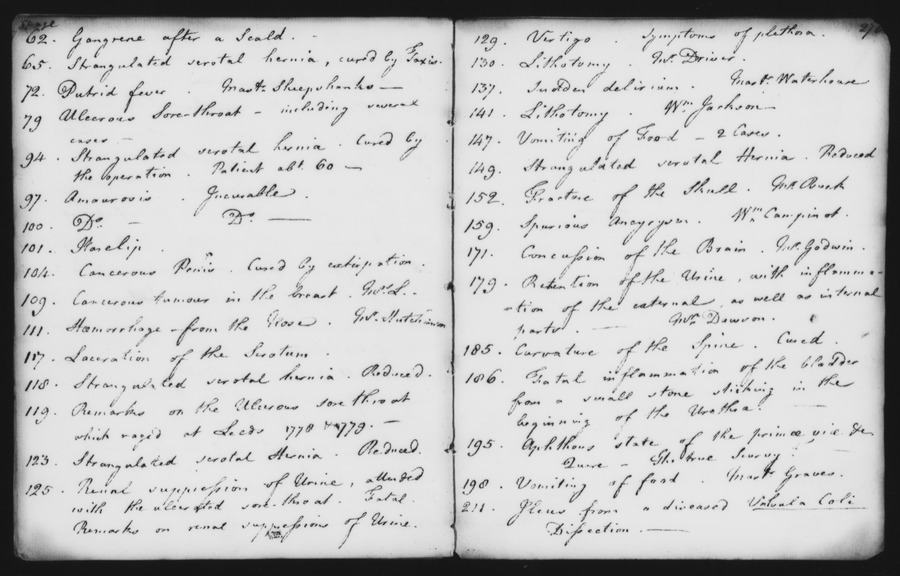 Page
62. Gangrene after a Scald. -
65. Strangulated scrotal hernia, cured by Taxis.
72. Putrid fever. Mastr. Sheepshanks —
79 Ulcerous Sore throat - including several
cases —
94. Strangulated scrotal hernia. Cured by
the operation. Patient abt. 60 —
97. Amaurosis. Incurable.
100. Do. — Do. —
101. Harelip.
104. Cancerous Penis. Cured by extirpation.
109. Cancerous tumour in the breast. Mrs. L..
111. Hæmorrhage from the Nose. Mr. Hutchinson
117. Laceration of the Scrotum.
118. Strangulated scrotal hernia. Reduced.
119. Remarks on the Ulcerous sore throat
which raged at Leeds 1778 & 1779. —
123. Strangulated scrotal Hernia. Reduced.
125. Renal suppression of Urine, attended
with the ulcerated sore-throat. Fatal.
Remarks on renal suppressions of Urine.
129. Vertigo. Symptoms of plethora.
130. Lithotomy. Mr. Driver.
137. Sudden delirium. Mastr. Waterhouse
141. Lithotomy. Wm. Jackson —
147. Vomiting of Food — 2 Cases.
149. Strangulated scrotal Hernia. Reduced
152. Fracture of the Skull. Mr.
159. Spurious Aneurysm. Wm. Campinot.
171. Concussion of the Brain. Mr. Godwin.
179. Retention of the Urine, with inflamma-
-tion of the external, as well as internal
parts. — Mrs. Dawson.
185. Curvature of the Spine. Cured.
186. Fatal inflammation of the bladder
from a small stone sticking in the
beginning of the Urethra. —
195. Aphthous state of the primæ viæ &c
Quære — The true Scurvy?
198. Vomiting of food. Mastr. Graves.
211. Ileus from a diseased Valvula Coli
Dissection. —